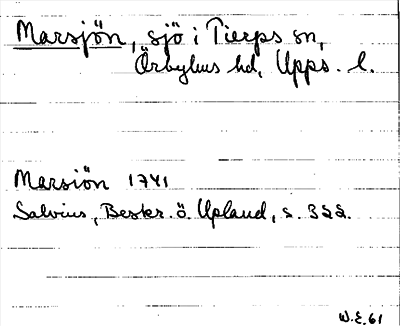 Marsjön, sjö i Tierps sn,
Örbyhus hd, Upps. l.
Marsiön 1741
Salvius, Beskr. ö. Upland, s. 322.
W.E. 61